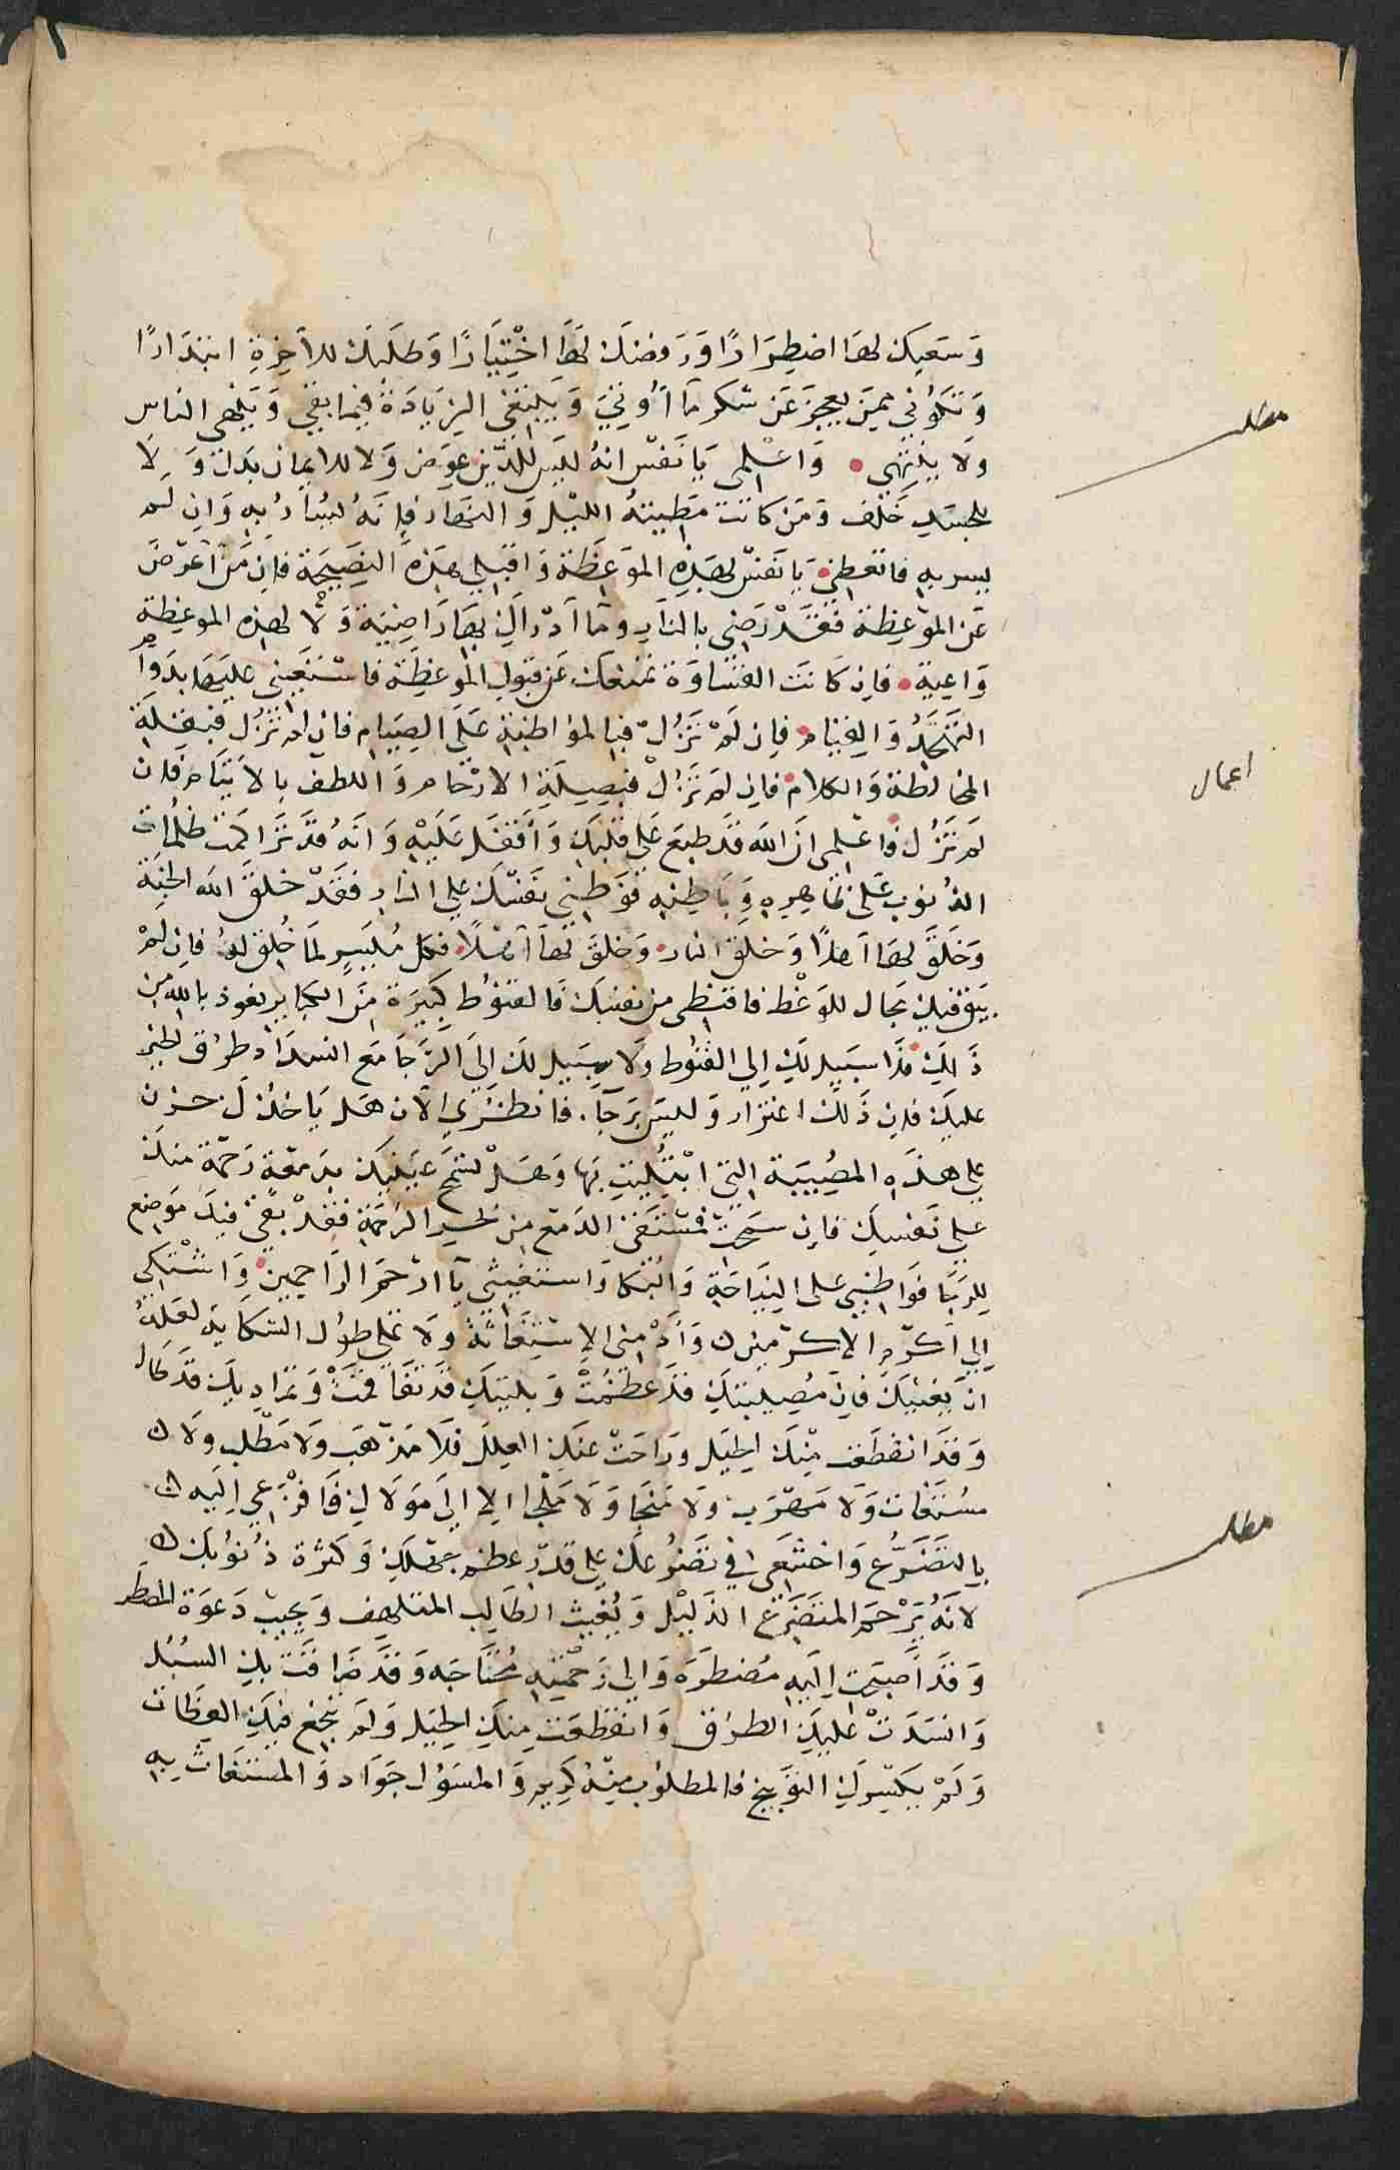 وَسَعيك لها اضطِرَارًا وَرَفضك لَهَا اخْتِيَارًا وَطَلَبك للآخِرةِ ابتدَارًا
وَلا تكوُني مِمَّن يعجزعَن شكر مَا أُوتيَ وَيَبتَغي الزيَادَة فيما بقي وَيَنْهى الناس
ولَا ينتَهي وَاعْلمي يَا نَفسْ انهُ ليَس للدّين عِوَض وَلا للايمان بدَل وَلَا
للجسَد خَلف وَمَن كانت مَطِيتهُ الليْل وَالنهار فإنهُ يُسَارُ بِهِ وَان لم
يسر به فاتعظي يَا نفسْ بهَذِهِ الموَعظة وَاقبَلي هَذِهِ النصَيحَة فان مَن اعرَضَ
عَن الموْعظة فقَدْ رَضي بالنَار وما أرَاك بهَا رَاضيَة وَلا لهذه الموعظة
وَاعِية فان كانَت القسَاوَة تمنعك عَن قبول الموعظَة فاستعَيني عليَها بدوَام
التهَجدُ وَالقيام فان لَمْ تَزُل فبالموُاظبة عَلى الصِيَام فان لم تزُل فبقلة
المخالطة وَالكلام فان لم تزُل فبصِلَة الارْحَام وَاللطف بالايتَام فان
لم تَزُل فاعْلمي ان الله قد طبعَ عَلى قلبَك وَأقفلَ عَلَيْهِ وَانهُ قد تَرَاكمت ظلُمات
الذنوب عَلى ظاهِره وَبَاطنِه فوَطني نفسَك على النار فقَدْ خلقَ الله الجنة
وَخَلَقَ لها أهلًا وَخلقَ النار وَخلقَ لهَا أهْلًا فكل مُيسَر لمَا خُلق لهُ فان لمْ
يَبق فيك مجال للوَعْظ فاقنطي من نفسِك وَالقنوُط كبيَرَة منَ الكبائر نعوذ بالله من
ذَلِكَ فلَا سَبيل لك الي القنُوط ولَا سبيَل لك الى الرَجَا مَع انسدَاد طرُق الخير
عليك فان ذَلك اغترار وَليسَ برَجَآ فانظُري الآن هَل يَاخذك حزن
على هذه المصُيبَة التي ابْتُليت بهَا وَهَلْ تسْمَح عَيَنك بدَمعَة رَحمَة منك
على نَفسِك فان سَمَحَتْ فمُسْتَقى الدَمع من بَحر الرَحمَة فقدْ بقَي فيك مَوضع
لِلرَجَا فوَاظبي على النيَاحَة وَالبُكا وَاستغيثي بأرْحَم الراحِمين وَاشْتَكي
الى أكرَم الاكرَمين وَأدْمِني الاستِغَاثة ولَا تمَلي طوُل الشكايَة لعَلهُ
ان يُغيثك فان مُصيبتك قَد عظمُتْ وَبليتَك قَد تفَاقمَتْ وَتمَاديك قَد طال
وَقد انقطعَت منك الحيَل ورَاحَتْ عنك العِلل فلا مَذهَب ولَا مَطْلب ولَا
مسُتغاث وَلَا مَهْرَب ولَا مَنجَا وَلَا مَلجا الا الىَ مَولَاك فافزَعي اليَه
بالتضَرُّع وَاخشَعي في تضَرُعك على قدرْ عظم جهلك وَكثرَة ذُنوُبك
لانَهُ يَرْحَم المتضَرّع الذَليْل وَيُغيث الطَالب المتلهف وَيجيب دَعوَة المضطر
وَقَد أصبَحت اليَهِ مُضطرَة وَالى رَحمْتِه محُتاجَه وَقَد ضَاقَت بك السبُل
وَانسَدَتْ عَليك الطرُق وَانقطعَت منك الحيَل وَلَم تنجع فيك العِظات
وَلَمْ يكسِرك التوَبيخ فالمطلوُب منهُ كريم وَالمسَؤل جوَاد وَالمستغاث به
مطلب
اعمال
مطلب